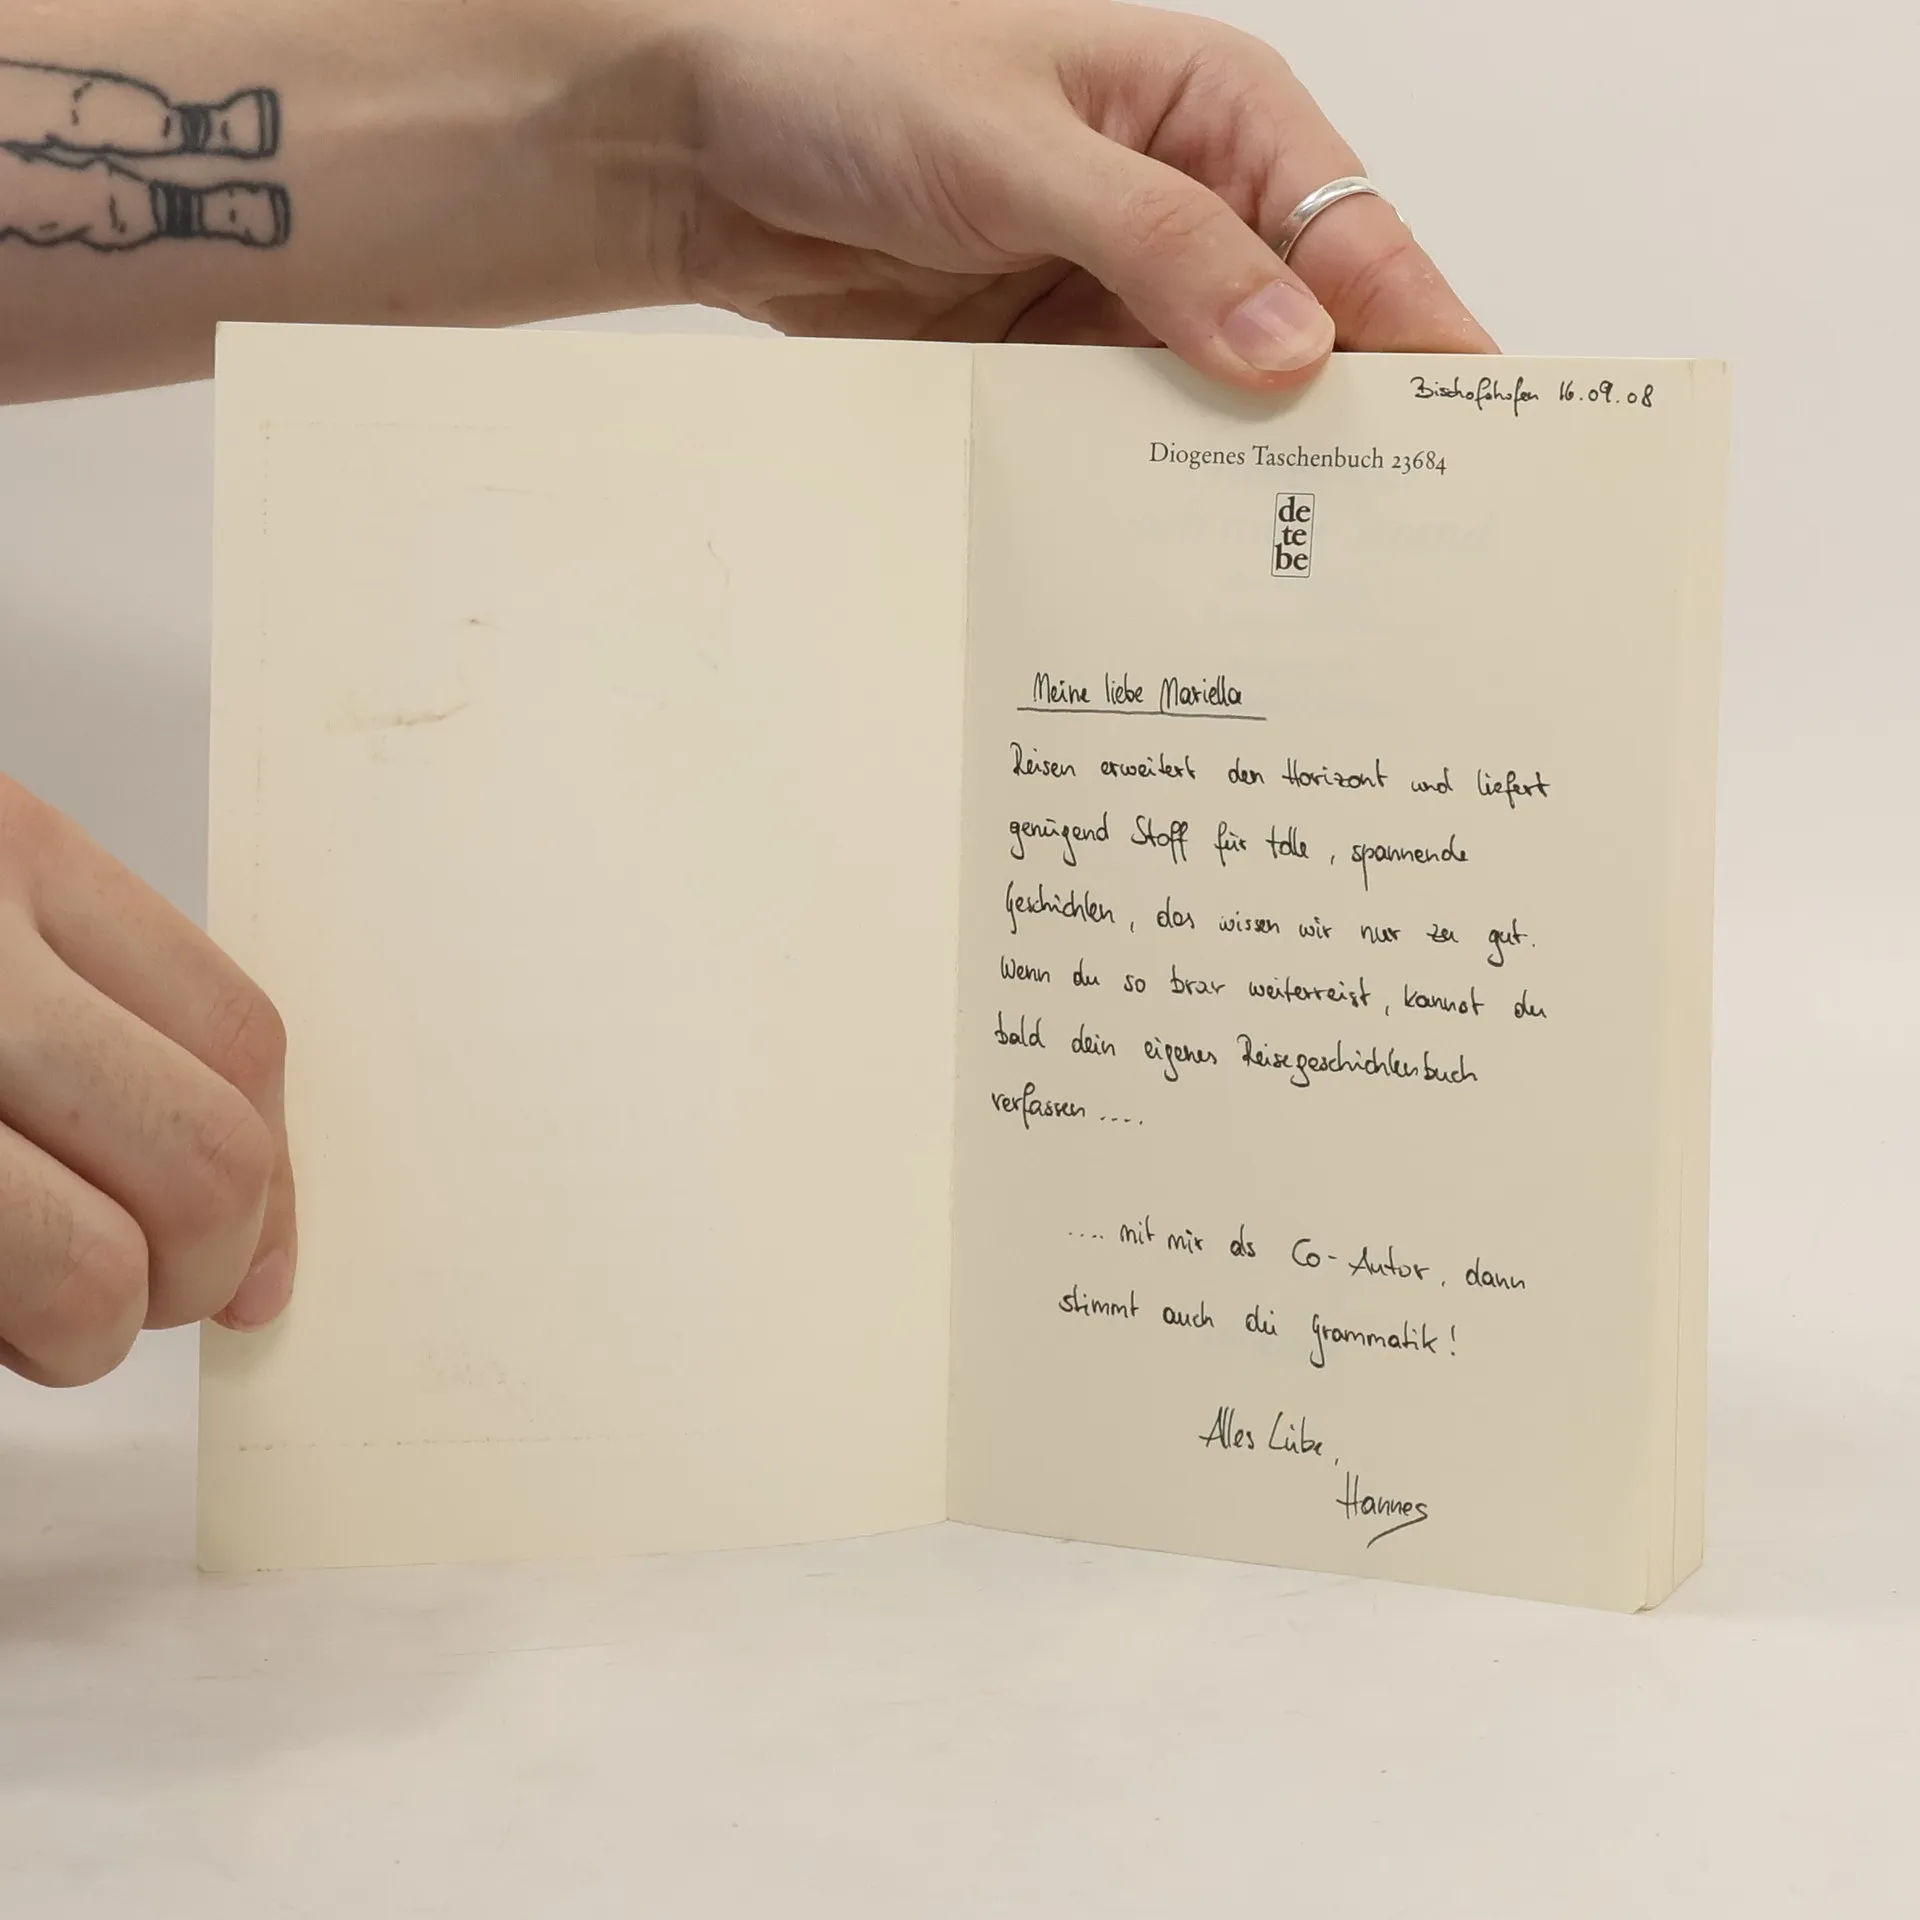 Bischofshofen 16.09.08
Diogenes Taschenbuch 23684
de
te
be
Meine liebe Mariella
Reisen erweitert den Horizont und liefert
genügend Stoff für tolle, spannende
Geschichten, das wissen wir nur zu gut.
Wenn du so brav weiterreist, kannst du
bald dein eigenes Reisegeschichtenbuch
verfassen ....
.... mit mir als Co-Autor, dann
stimmt auch die Grammatik!
Alles Liebe,
Hannes